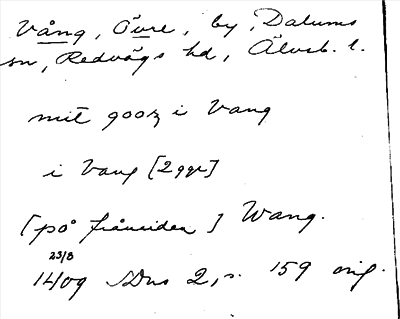 Vång, Övre, by, Dalums
sn, Redvägs hd, Älvsb. l.
mit gooz i Vang
i Vang [2 ggr]
[på frånsidan] Wang.
23/8
1409 SDns 2, s. 159 orig.